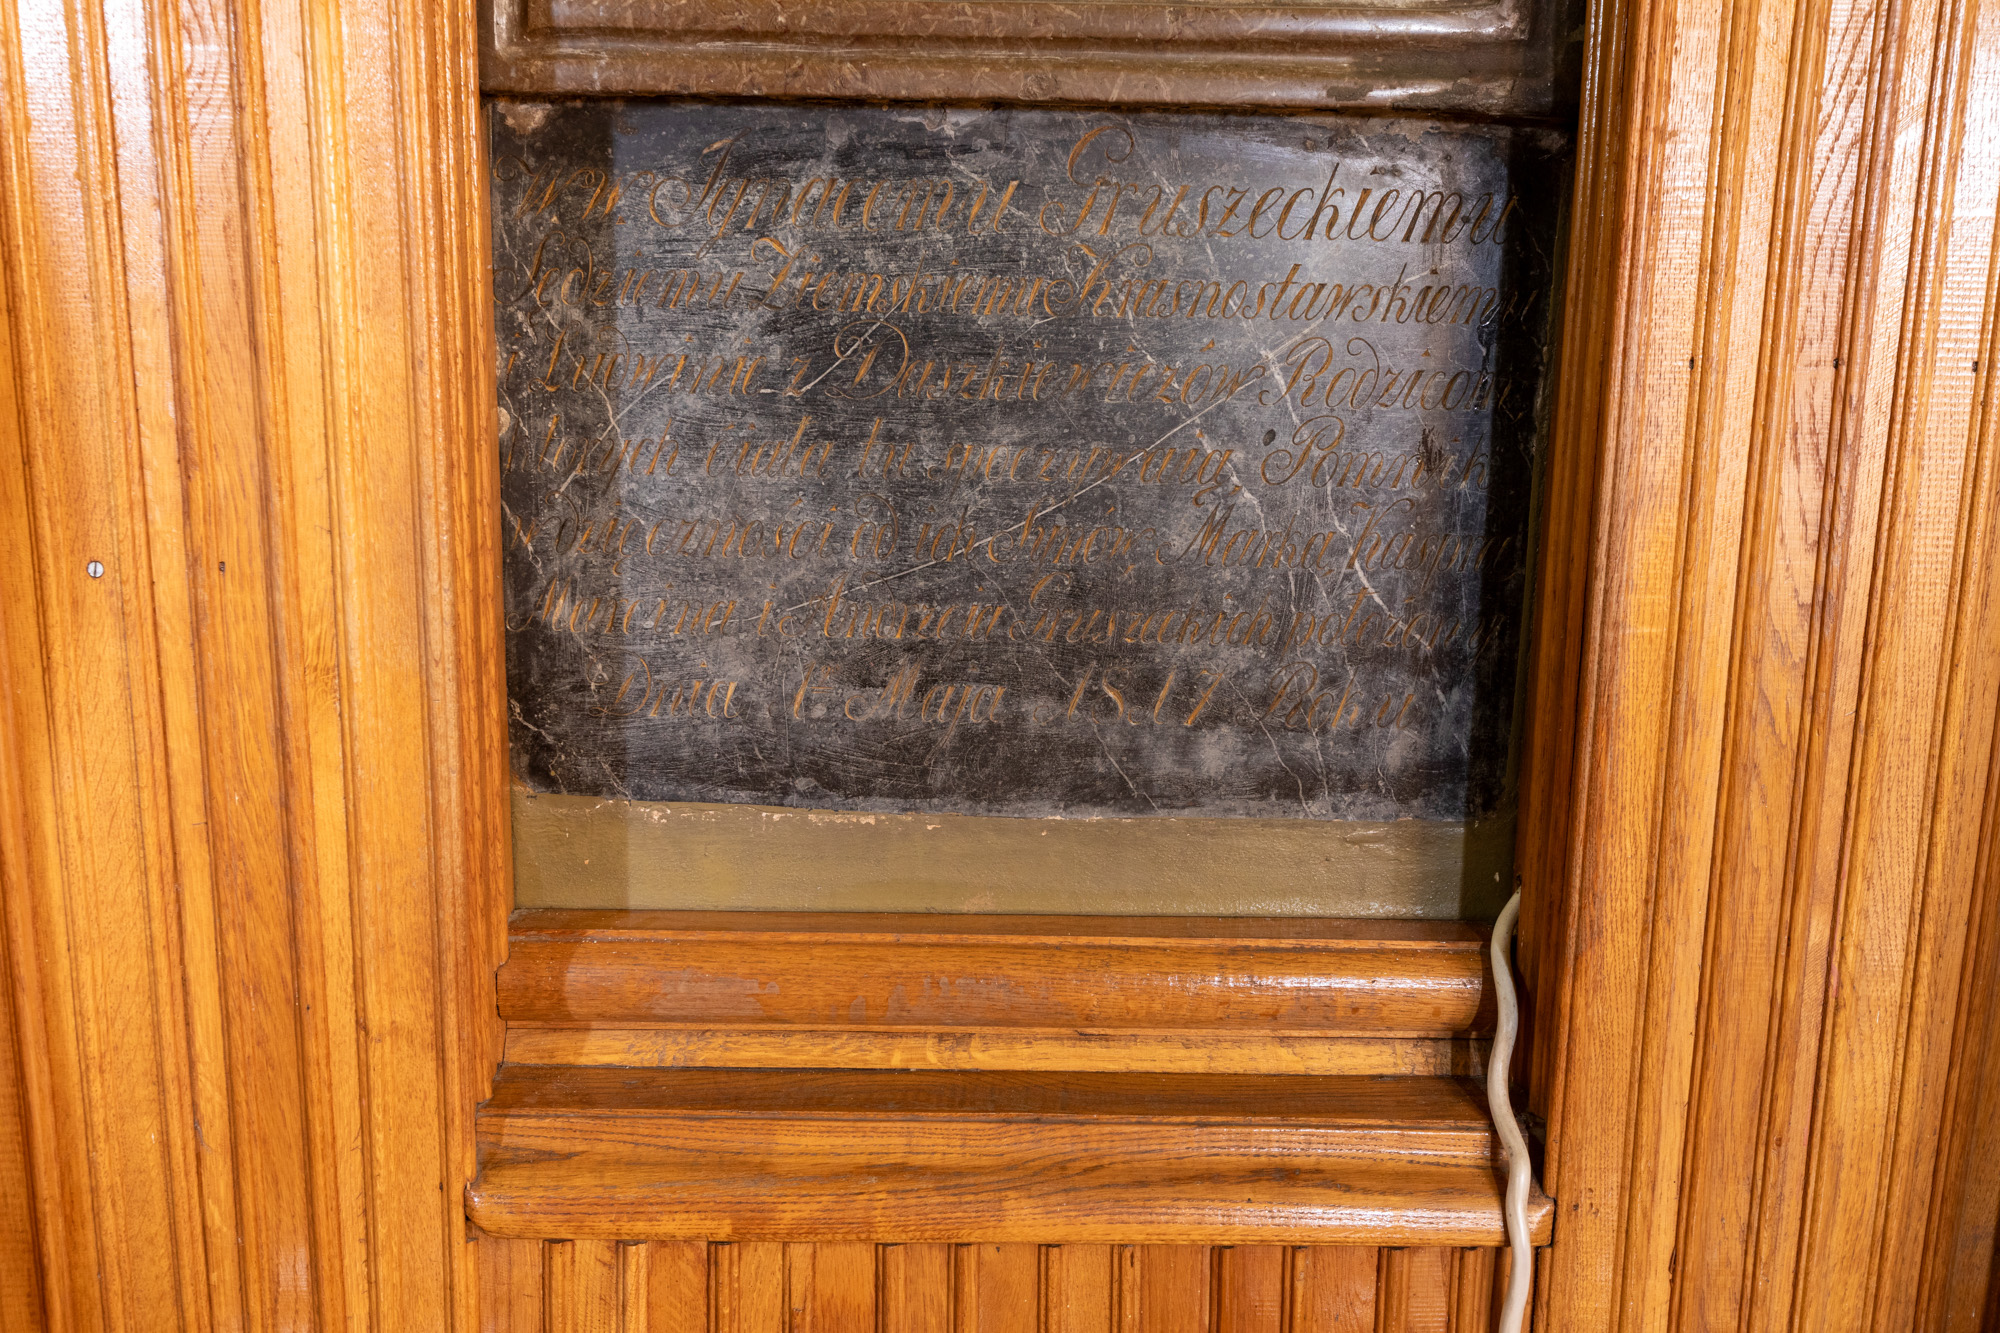 W W. Ignacemu Gruszeckiemu
Sędziemu Ziemskiemu Krasnostawskiemu
i Ludwinie z Daszkiewiczów Rodzicom,
których ciała tu spoczywaią, Pomnik
wdzięczności od ich Synów, Marka, Kaspra
Marcina i Andrzeia Gruszeckich położony
Dnia 1º Maja 1817 Roku